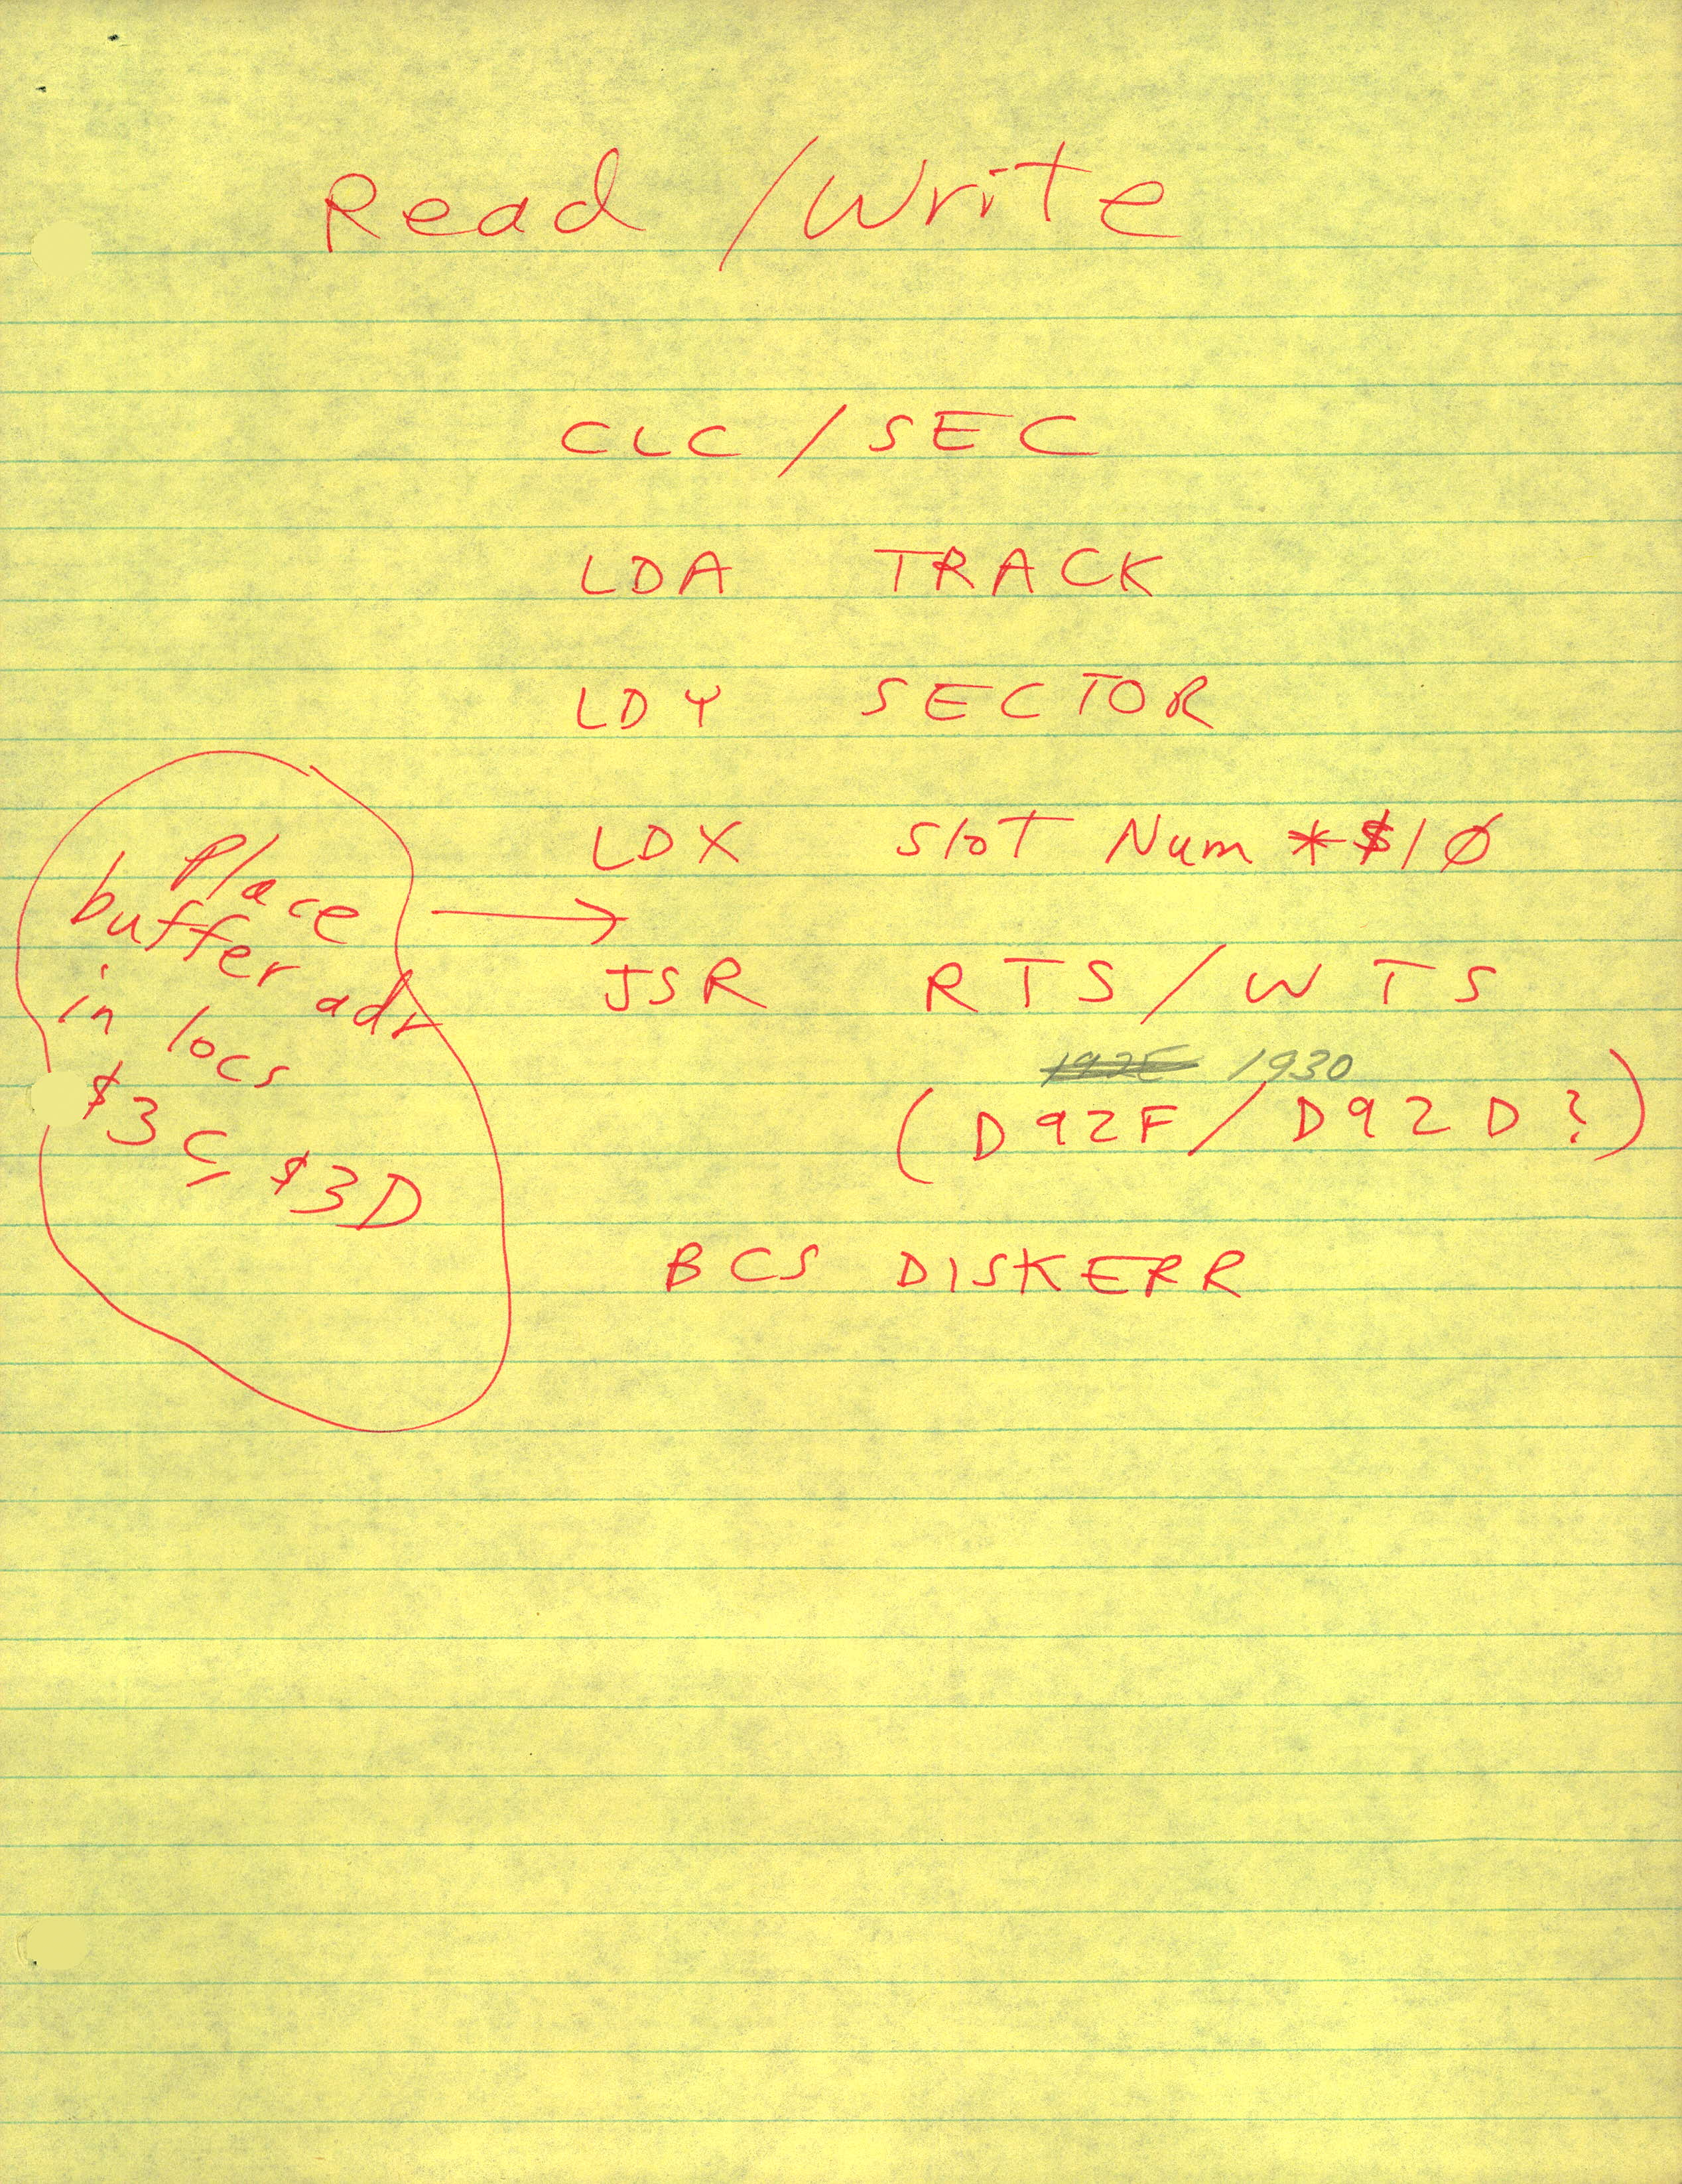 Read / Write
CLC / SEC
LDA TRACK
LDY SECTOR
LDX Slot Num *$1Ø
Place
buffer adr
in locs
$3C, $3D
JSR RTS / WTS
192E 1930
(D92F / D92D?)
BCS DISKERR